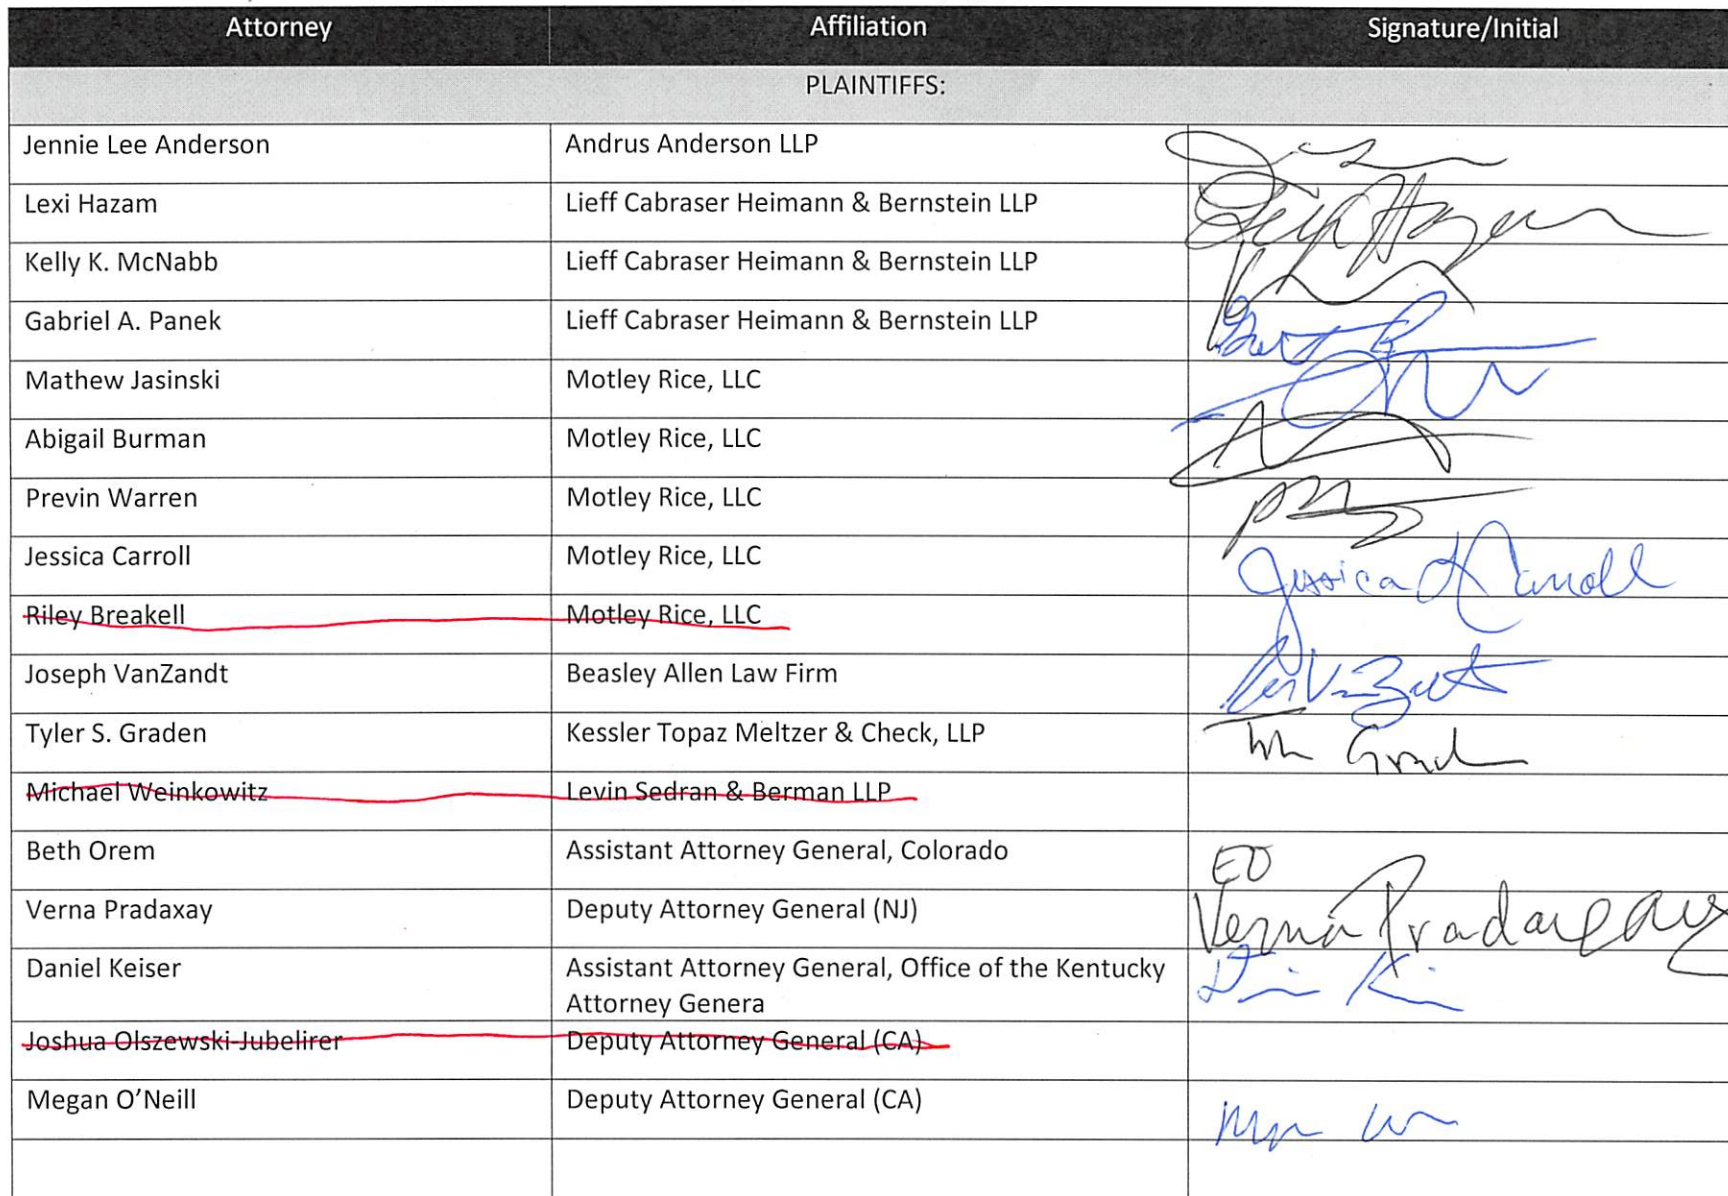 Attorney Affiliation Signature/Initial
PLAINTIFFS:
Jennie Lee Anderson Andrus Anderson LLP
Lexi Hazam Lieff Cabraser Heimann & Bernstein LLP
Kelly K. McNabb Lieff Cabraser Heimann & Bernstein LLP
Gabriel A. Panek Lieff Cabraser Heimann & Bernstein LLP
Mathew Jasinski Motley Rice, LLC
Abigail Burman Motley Rice, LLC
Previn Warren Motley Rice, LLC
Jessica Carroll Motley Rice, LLC Jessica Carroll
Riley Breakell Motley Rice, LLC
Joseph VanZandt Beasley Allen Law Firm
Tyler S. Graden Kessler Topaz Meltzer & Check, LLP
Michael Weinkowitz Levin Sedran & Berman LLP
Beth Orem Assistant Attorney General, Colorado EO
Verna Pradaxay Deputy Attorney General (NJ) Verna Pradaxay
Daniel Keiser Assistant Attorney General, Office of the Kentucky
Attorney Genera
Joshua Olszewski-Jubelirer Deputy Attorney General (CA)
Megan O’Neill Deputy Attorney General (CA)